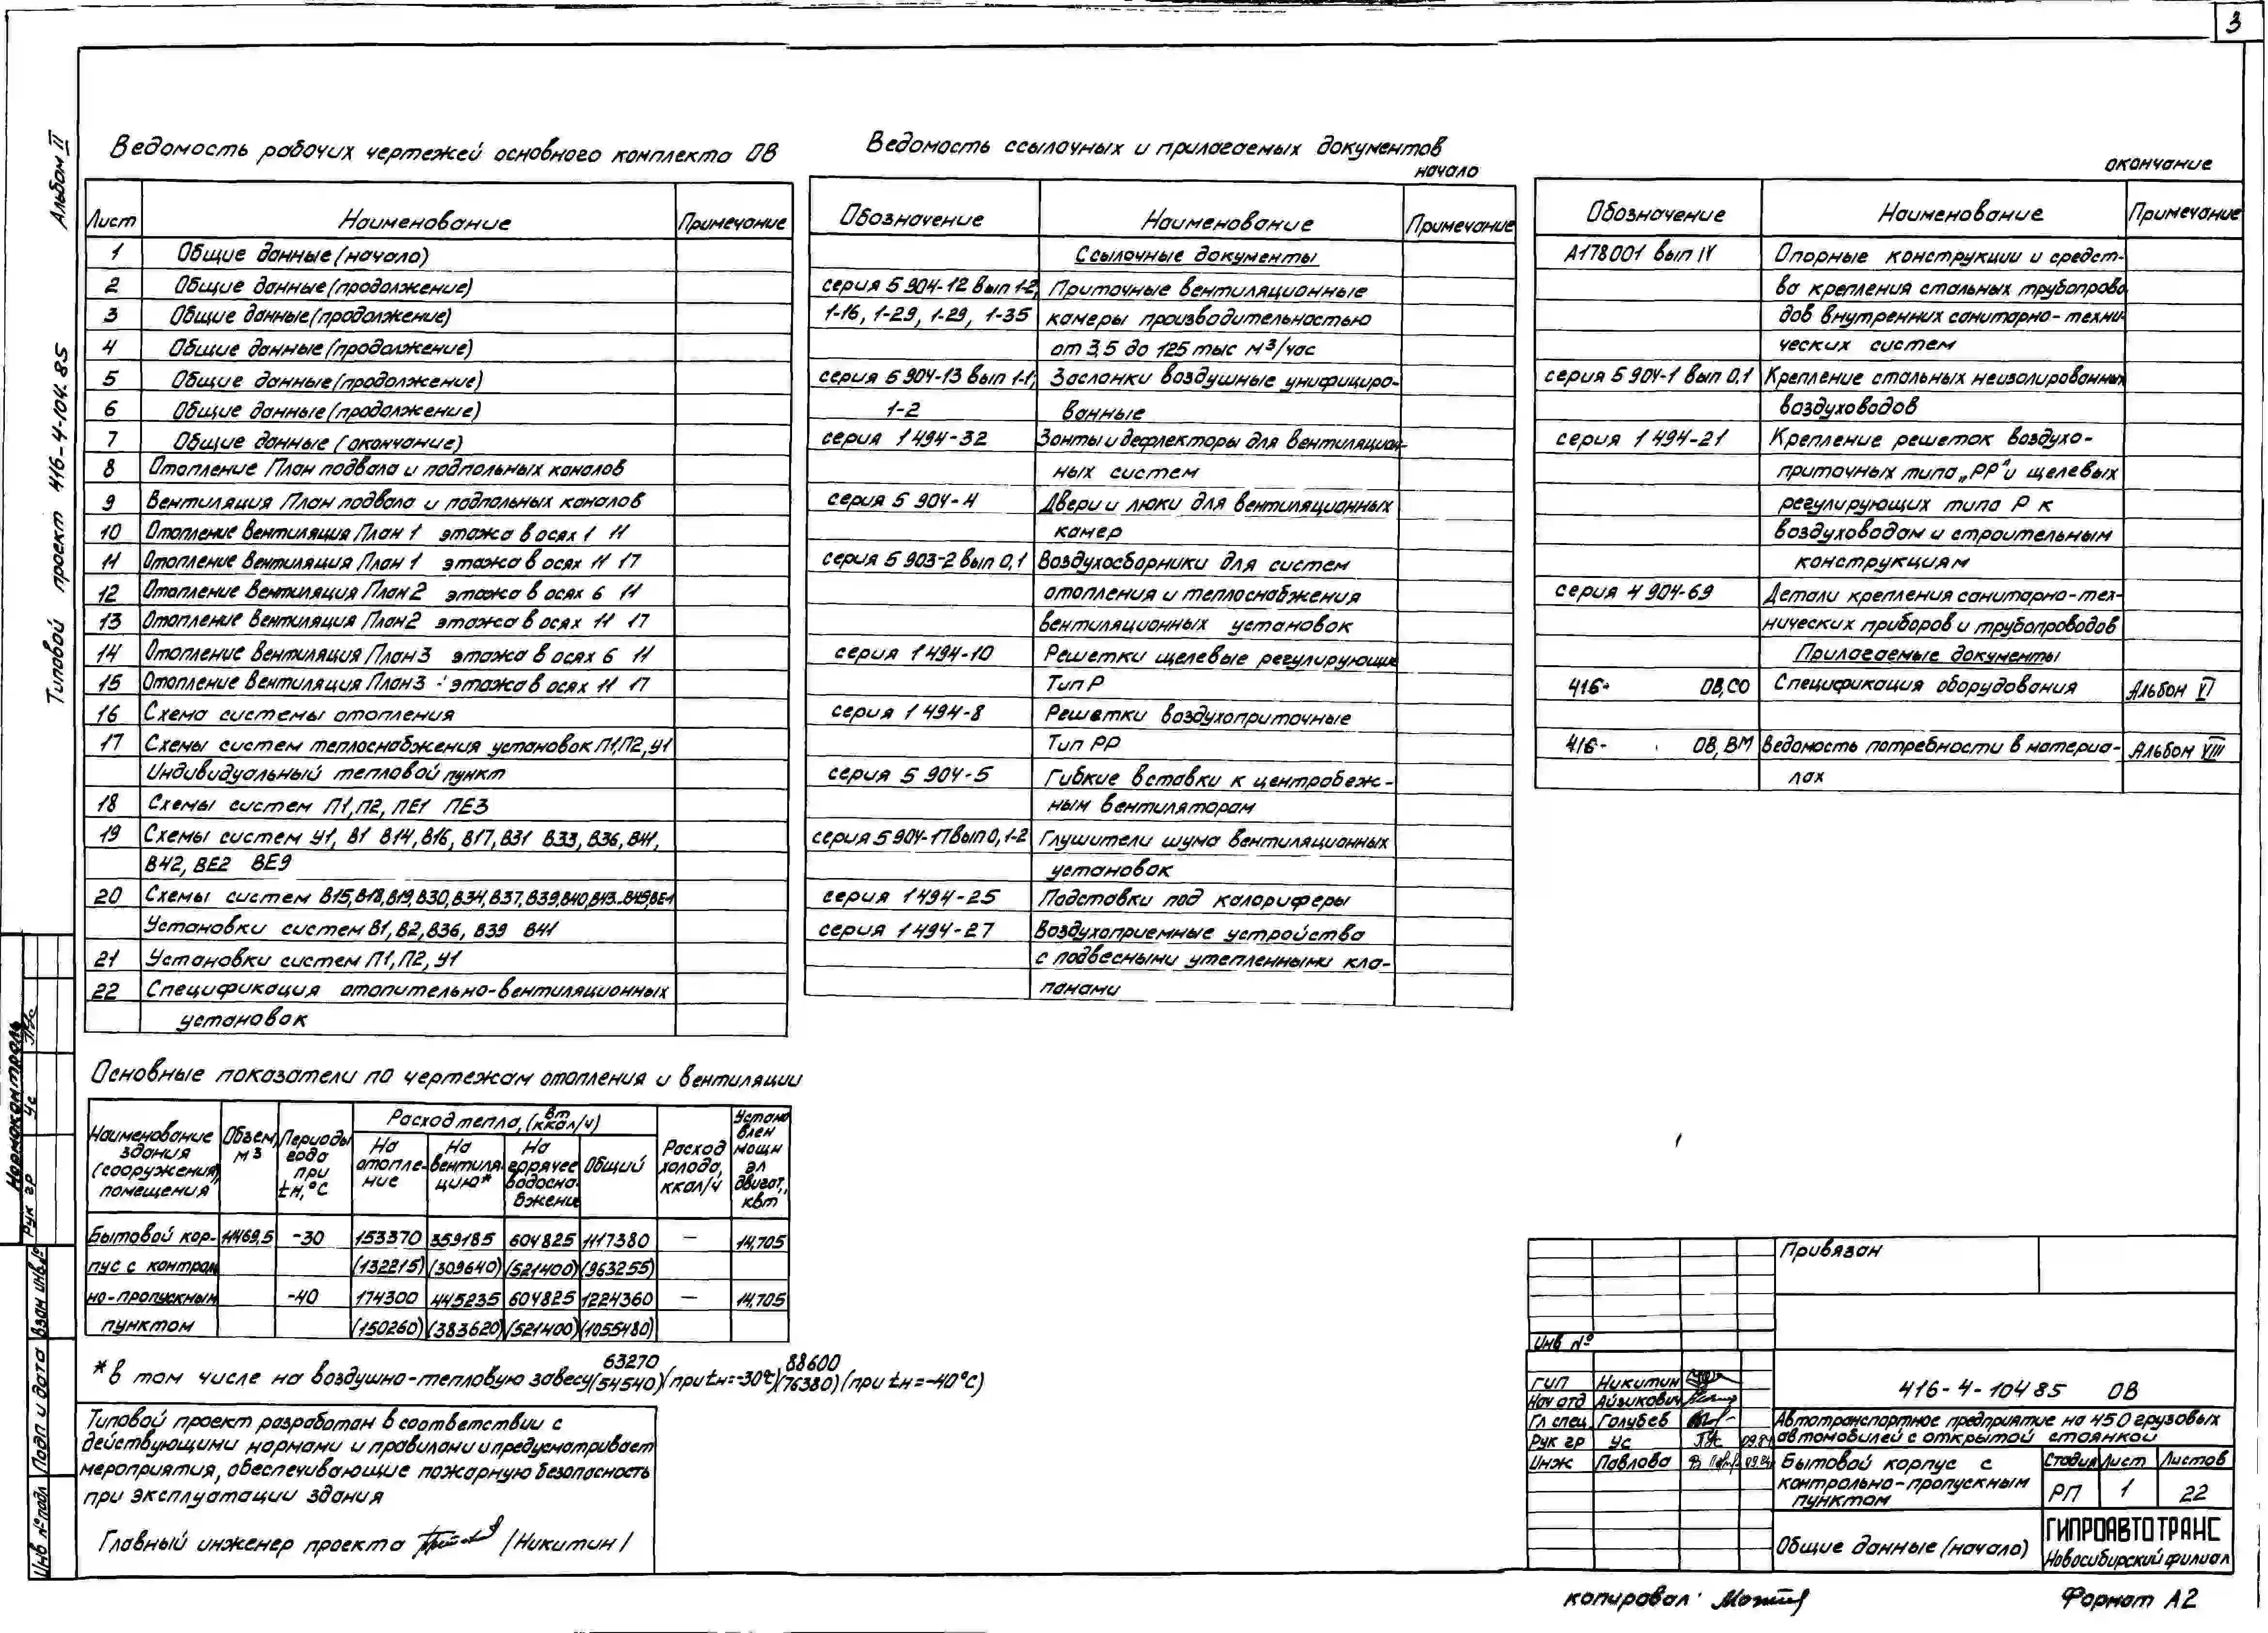 3
Альбом II
Типовой проект 416-4-104.85
Ведомость рабочих чертежей основного комплекта ОВ
Лист Наименование Примечание
1 Общие данные (начало)
2 Общие данные (продолжение)
3 Общие данные (продолжение)
4 Общие данные (продолжение)
5 Общие данные (продолжение)
6 Общие данные (продолжение)
7 Общие данные (окончание)
8 Отопление План подвала и подпольных каналов
9 Вентиляция План подвала и подпольных каналов
10 Отопление Вентиляция План 1 этажа в осях 1 11
11 Отопление Вентиляция План 1 этажа в осях 11 17
12 Отопление Вентиляция План 2 этажа в осях 6 11
13 Отопление Вентиляция План 2 этажа в осях 11 17
14 Отопление Вентиляция План 3 этажа в осях 6 11
15 Отопление Вентиляция План 3 этажа в осях 11 17
16 Схема системы отопления
17 Схемы систем теплоснабжения установок П1,П2,У1
Индивидуальный тепловой пункт
18 Схемы систем П1,П2, ПЕ1 ПЕ3
19 Схемы систем У1, В1 В14,В16, В17,В31 В33,В36,В41,
В42, ВЕ2 ВЕ9
20 Схемы систем В15,В18,В19,В30,В34,В37,В39,В40,В43...В49,ВЕ1
Установки систем В1,В2,В36, В39 В41
21 Установки систем П1,П2,У1
22 Спецификация отопительно-вентиляционных
установок
Ведомость ссылочных и прилагаемых документов
начало
Обозначение Наименование Примечание
Ссылочные документы
серия 5 904-12 вып 1-2, Приточные вентиляционные
1-16, 1-29, 1-29, 1-35 камеры производительностью
от 3,5 до 125 тыс м3/час
серия 5 904-13 вып 1-1, Заслонки воздушные унифициро-
1-2 ванные
серия 1 494-32 Зонты и дефлекторы для вентиляцион-
ных систем
серия 5 904-4 Двери и люки для вентиляционных
камер
серия 5 903-2 вып 0,1 Воздухосборники для систем
отопления и теплоснабжения
вентиляционных установок
серия 1 494-10 Решетки щелевые регулирующие
Тип Р
серия 1 494-8 Решетки воздухоприточные
Тип РР
серия 5 904-5 Гибкие вставки к центробеж-
ным вентиляторам
серия 5 904-17 вып 0, 1-2 Глушители шума вентиляционных
установок
серия 1 494-25 Подставки под калориферы
серия 1 494-27 Воздухоприемные устройства
с подвесными утепленными кла-
панами
окончание
Обозначение Наименование Примечание
А178001 вып IV Опорные конструкции и средст-
ва крепления стальных трубопрово
дов внутренних санитарно-техни-
ческих систем
серия 5 904-1 вып 0.1 Крепление стальных неизолированных
воздуховодов
серия 1 494-21 Крепление решеток воздухо-
приточных типа „РР" и щелевых
регулирующих типа Р к
воздуховодам и строительным
конструкциям
серия 4 904-69 Детали крепления санитарно-тех-
нических приборов и трубопроводов
Прилагаемые документы
416- ОВ,СО Спецификация оборудования Альбом VI
416- ОВ, ВМ Ведомость потребности в материа- Альбом VIII
лах
Основные показатели по чертежам отопления и вентиляции
Наименование здания (сооружения), помещения
Объем, м3
Периоды года при tн,°С
Расход тепла, (Вт ккал/ч)
На отопле-ние
На вентиля-цию*
На горячее водосна-бжение
Общий
Расход холода, ккал/ч
Установлен мощн эл двигат., квт
Бытовой кор- 14469,5 -30 153370 359185 604825 1117380 — 14,705
пус с контроль (132215) (309640) (521400) (963255)
но-пропускным -40 174300 445235 604825 1224360 — 14,705
пунктом (150260) (383620) (521400) (1055480)
* в том числе на воздушно-тепловую завесу 63270 (54540) (при tн=-30°С) 88600 (76380) (при tн=-40°С)
Типовой проект разработан в соответствии с
действующими нормами и правилами и предусматривает
мероприятия, обеспечивающие пожарную безопасность
при эксплуатации здания
Главный инженер проекта /Никитин/
Нормоконтроль
Рук гр Ус
Инв № подл Подп и дата Взам инв №
Привязан
Инв №
ГИП Никитин
Нач отд Айзикович
Гл спец Голубев
Рук гр Ус 09.84
Инж Павлова 09.84
416-4-104 85 ОВ
Автотранспортное предприятие на 450 грузовых
автомобилей с открытой стоянкой
Бытовой корпус с
контрольно-пропускным
пунктом
Стадия Лист Листов
РП 1 22
Общие данные (начало)
ГИПРОАВТОТРАНС
Новосибирский филиал
копировал:
Формат А2